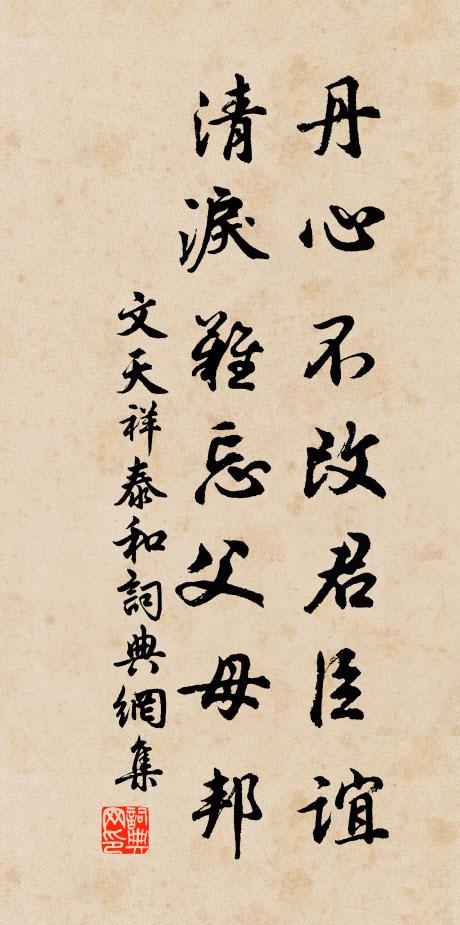 丹心不改君臣誼
清淚難忘父母邦
文天祥泰和詞典網集
詞典網印